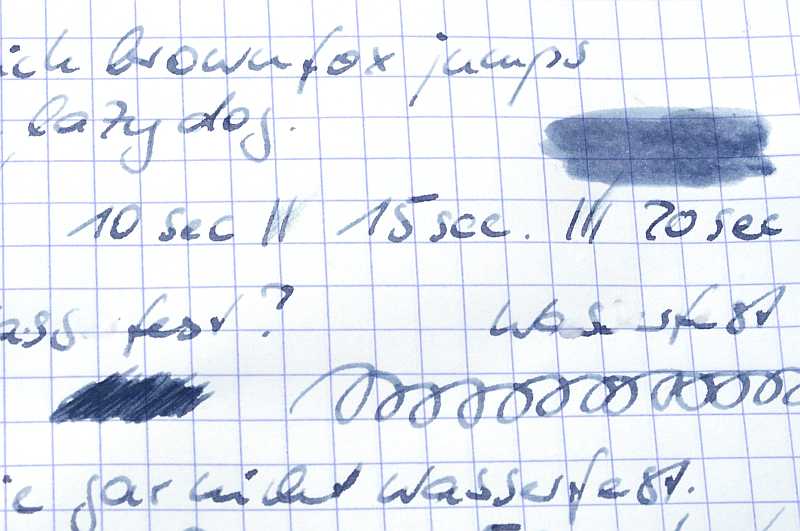 ick brown fox jumps
lazy dog.
10 sec || 15 sec. ||| 20 sec
fest? Wasserfest
gar nicht wasserfest.